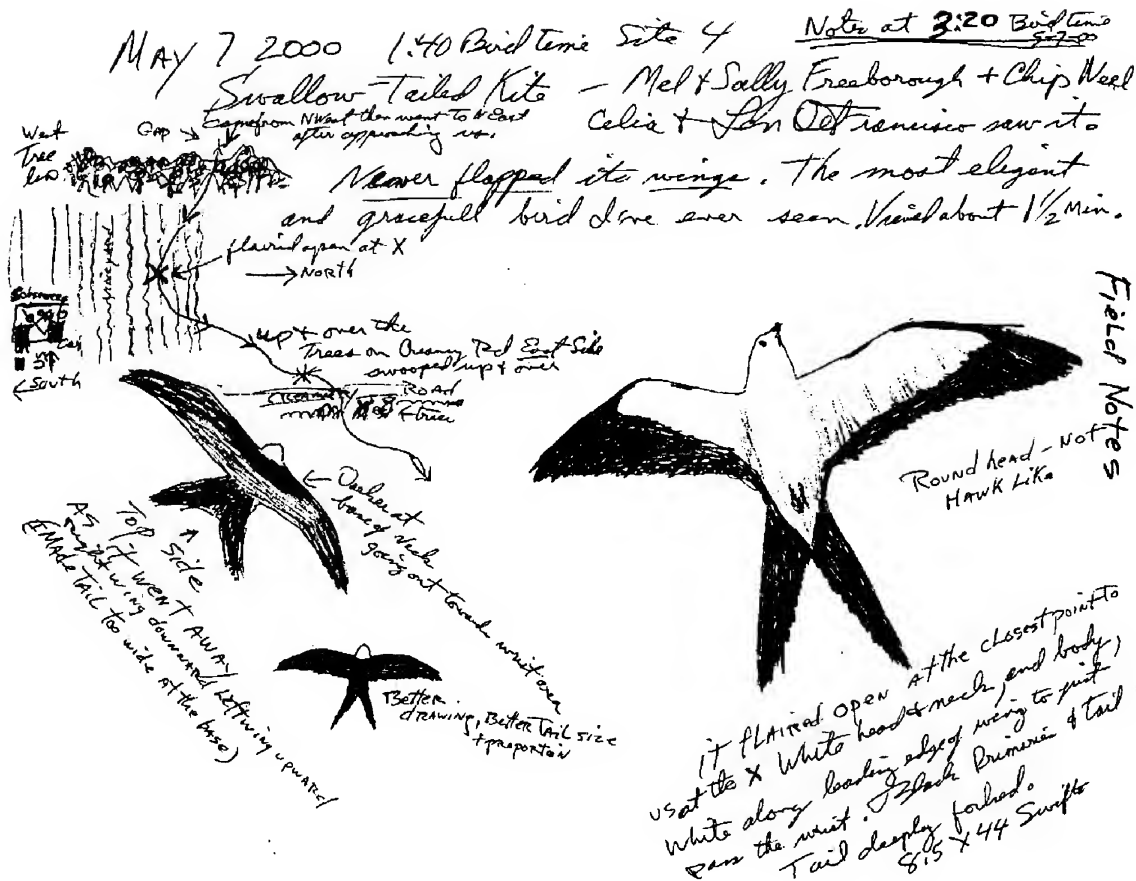 MAY 7 2000 1:40 Bird time Site 4
Notes at 2:20 Bird time
5-7-00
Swallow-Tailed Kite – Mel & Sally Freeborough + Chip Weel
Camefrom NWest then went to NEast
after approaching us.
Celia & Len DeFrancisco saw it.
Never flapped its wings. The most elegant
and gracefull bird I've ever seen. Viewed about 1 1/2 Min.
West
Tree
line
GAP
flaired open at X
X
→ North
Observers
Car
← South
up & over the
Trees on Creamery Rd East Side
swooped up & over
CREAMERY ROAD
trees
Darker at
base of neck
going out towards wrist area
↑
Top side
AS it went away
right wing downward left wing upward
(Made TAIL too wide at the base)
Better
drawing, Better Tail size
+ proportion
Field Notes
Round head – Not
HAWK Like
it flaired open at the closest point to
us at the X White head & neck, and body,
White along leading edge of wing to just
pass the wrist. Black Primaries & tail
Tail deeply forked.
8.5 X 44 Swifts